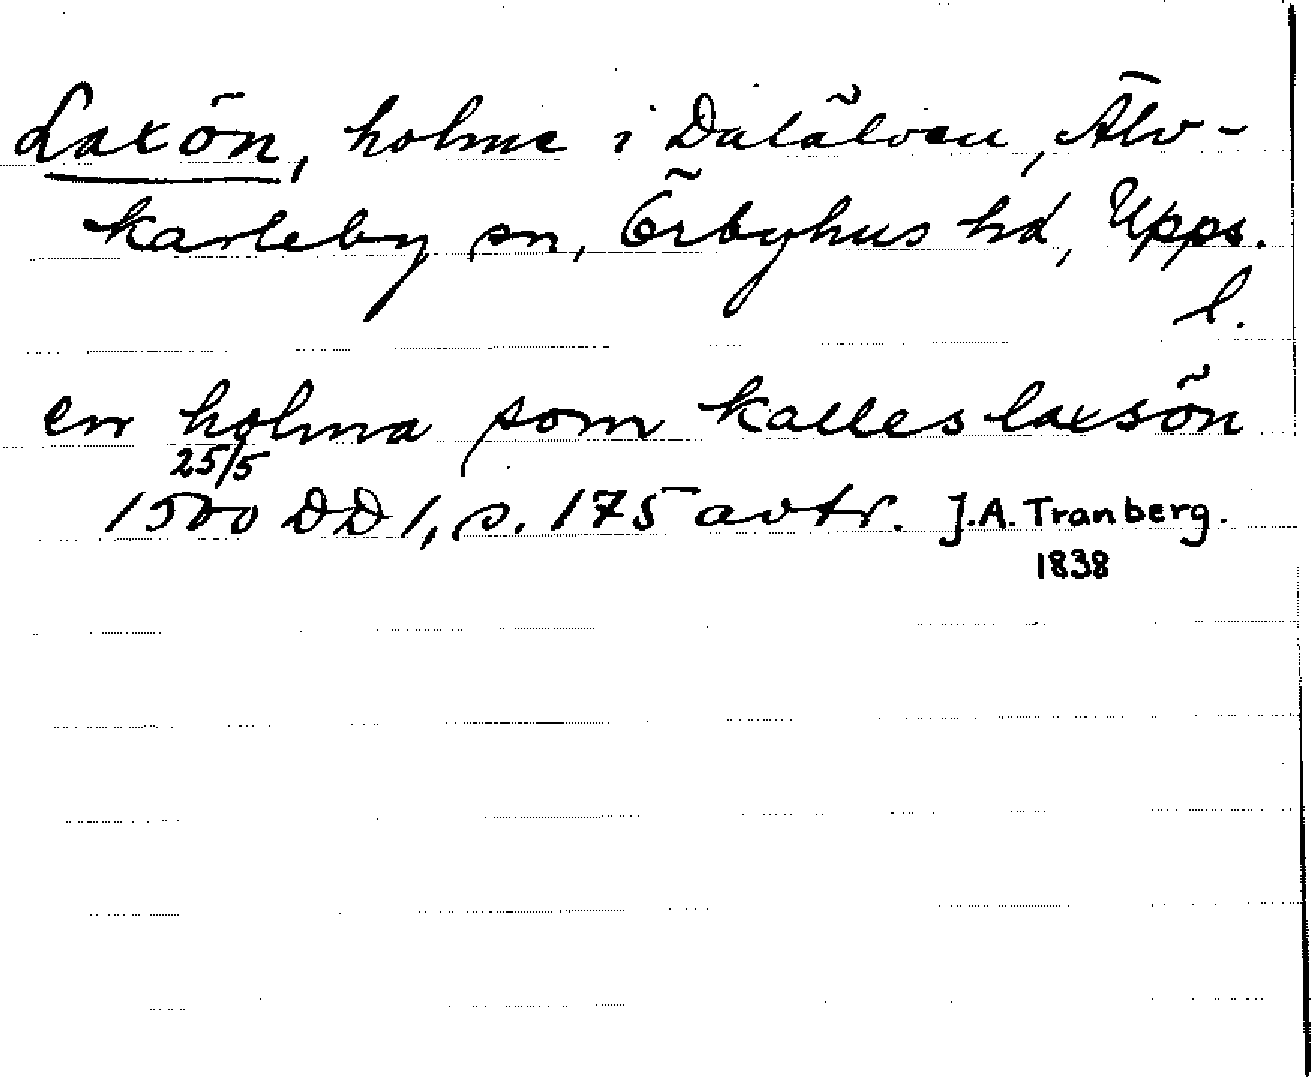 Laxön, holme i Dalälven, Älv-
karleby sn, Örbyhus hd, Upps.
l.
en holma som kalles laxsön
25/5
1500 DD 1, s. 175 avtr. J.A. Tranberg.
1838